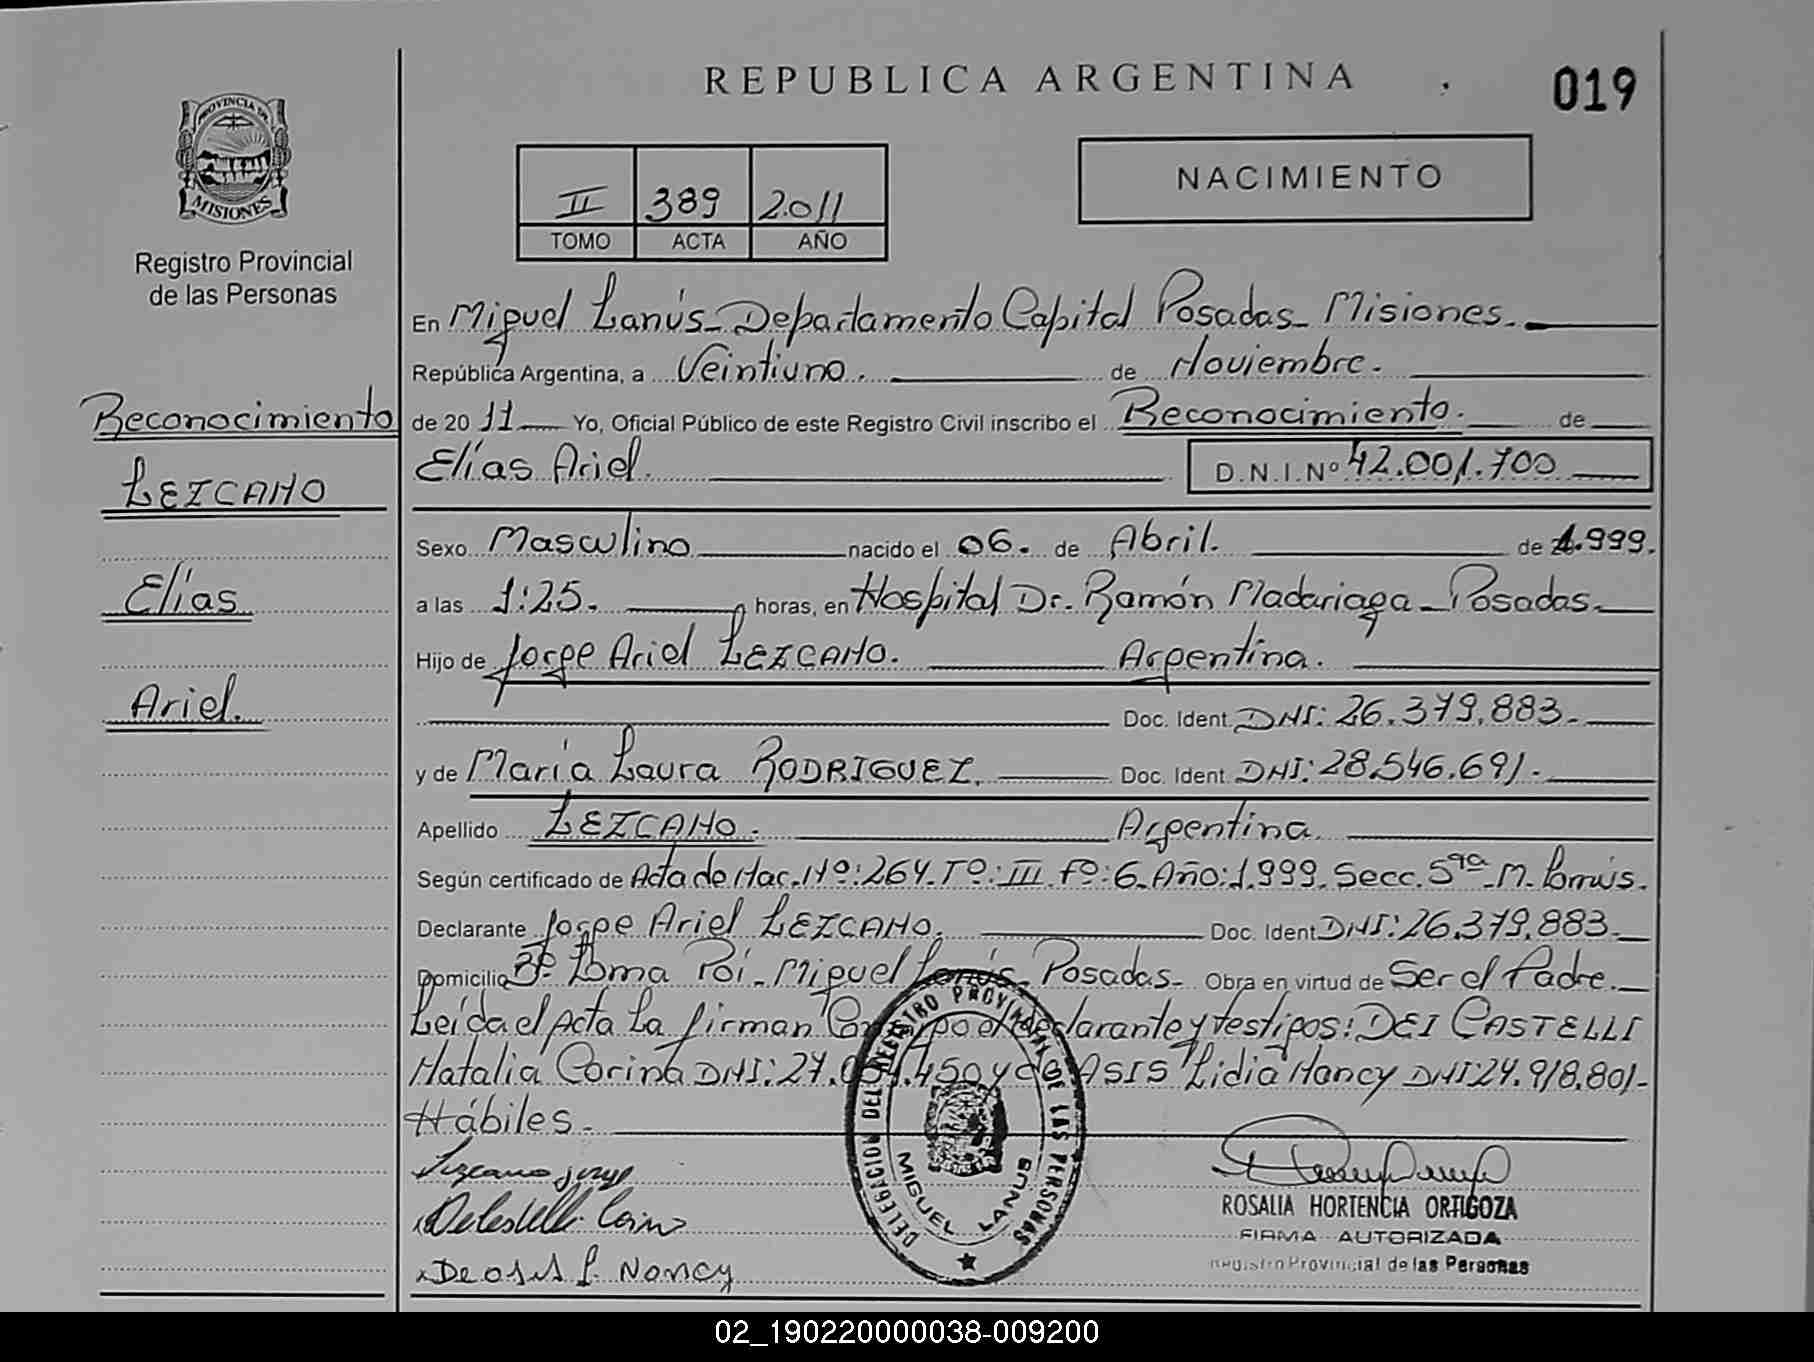 REPUBLICA ARGENTINA
019
PROVINCIA DE
MISIONES
Registro Provincial
de las Personas
II 389 2.011
TOMO ACTA AÑO
NACIMIENTO
En Miguel Lanús - Departamento Capital Posadas - Misiones.
República Argentina, a Veintiuno. de Noviembre.
de 20 11 Yo, Oficial Público de este Registro Civil inscribo el Reconocimiento. de
Elías Ariel. D.N.I.Nº 42.001.700
Reconocimiento
LEZCANO
Elías
Ariel.
Sexo Masculino nacido el 06. de Abril. de 1.999.
a las 1:25. horas, en Hospital Dr. Ramón Madariaga - Posadas.
Hijo de Jorge Ariel LEZCANO. Argentina.
Doc. Ident. DNI: 26.379.883.
y de María Laura RODRIGUEZ. Doc. Ident. DNI: 28.546.691.
Apellido LEZCANO. Argentina.
Según certificado de Acta de Nac. Nº: 264. Tº: III. Fº: 6. Año: 1.999. Secc. 5ta. M. Lanús.
Declarante Jorge Ariel LEZCANO. Doc. Ident DNI: 26.379.883.
Domicilio Bº Loma Poí - Miguel Lanús - Posadas. Obra en virtud de Ser el Padre.
Leída el Acta La firman Conmigo el declarante y testigos: DEI CASTELLI
Natalia Corina DNI: 27. .450 y de ASIS Lidia Nancy DNI: 24.918.801-
Hábiles.
Lezcano Jorge
DELEGACION DEL REGISTRO PROVINCIAL DE LAS PERSONAS
MIGUEL LANUS
De asis L. Nancy
ROSALIA HORTENCIA ORTIGOZA
FIRMA AUTORIZADA
Registro Provincial de las Personas
02_190220000038-009200